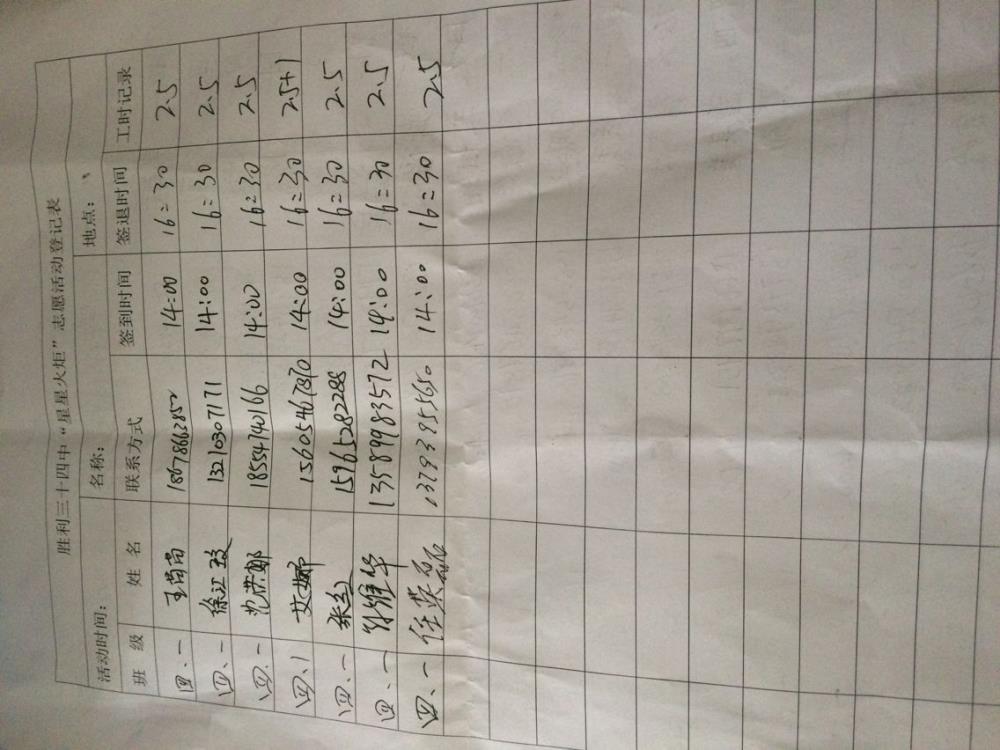 胜利三十四中“星星火炬”志愿活动登记表
活动时间： 名称： 地点：
班 级 姓 名 联系方式 签到时间 签退时间 工时记录
四、一 王尚尚 14:00 16:30 2.5
四、一 徐江玫 13210307171 14:00 16:30 2.5
四、一 18554740166 14:00 16:30 2.5
四、1 艾娜 15605467870 14:00 16:30 2.5+1
四、一 15965282288 14:00 16:30 2.5
四、一 13589983572 14:00 16:30 2.5
四、一 任荣磊 13793955650 14:00 16:30 2.5